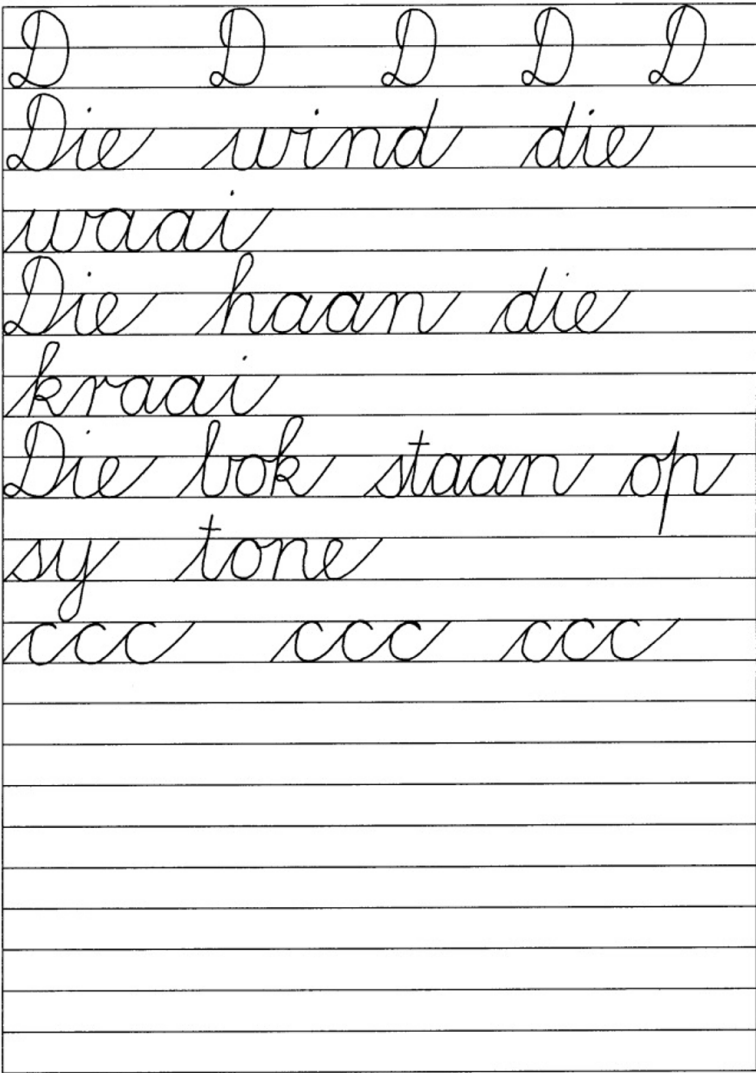 D D D D D
Die wind die
waai
Die haan die
kraai
Die bok staan op
sy tone
ccc ccc ccc